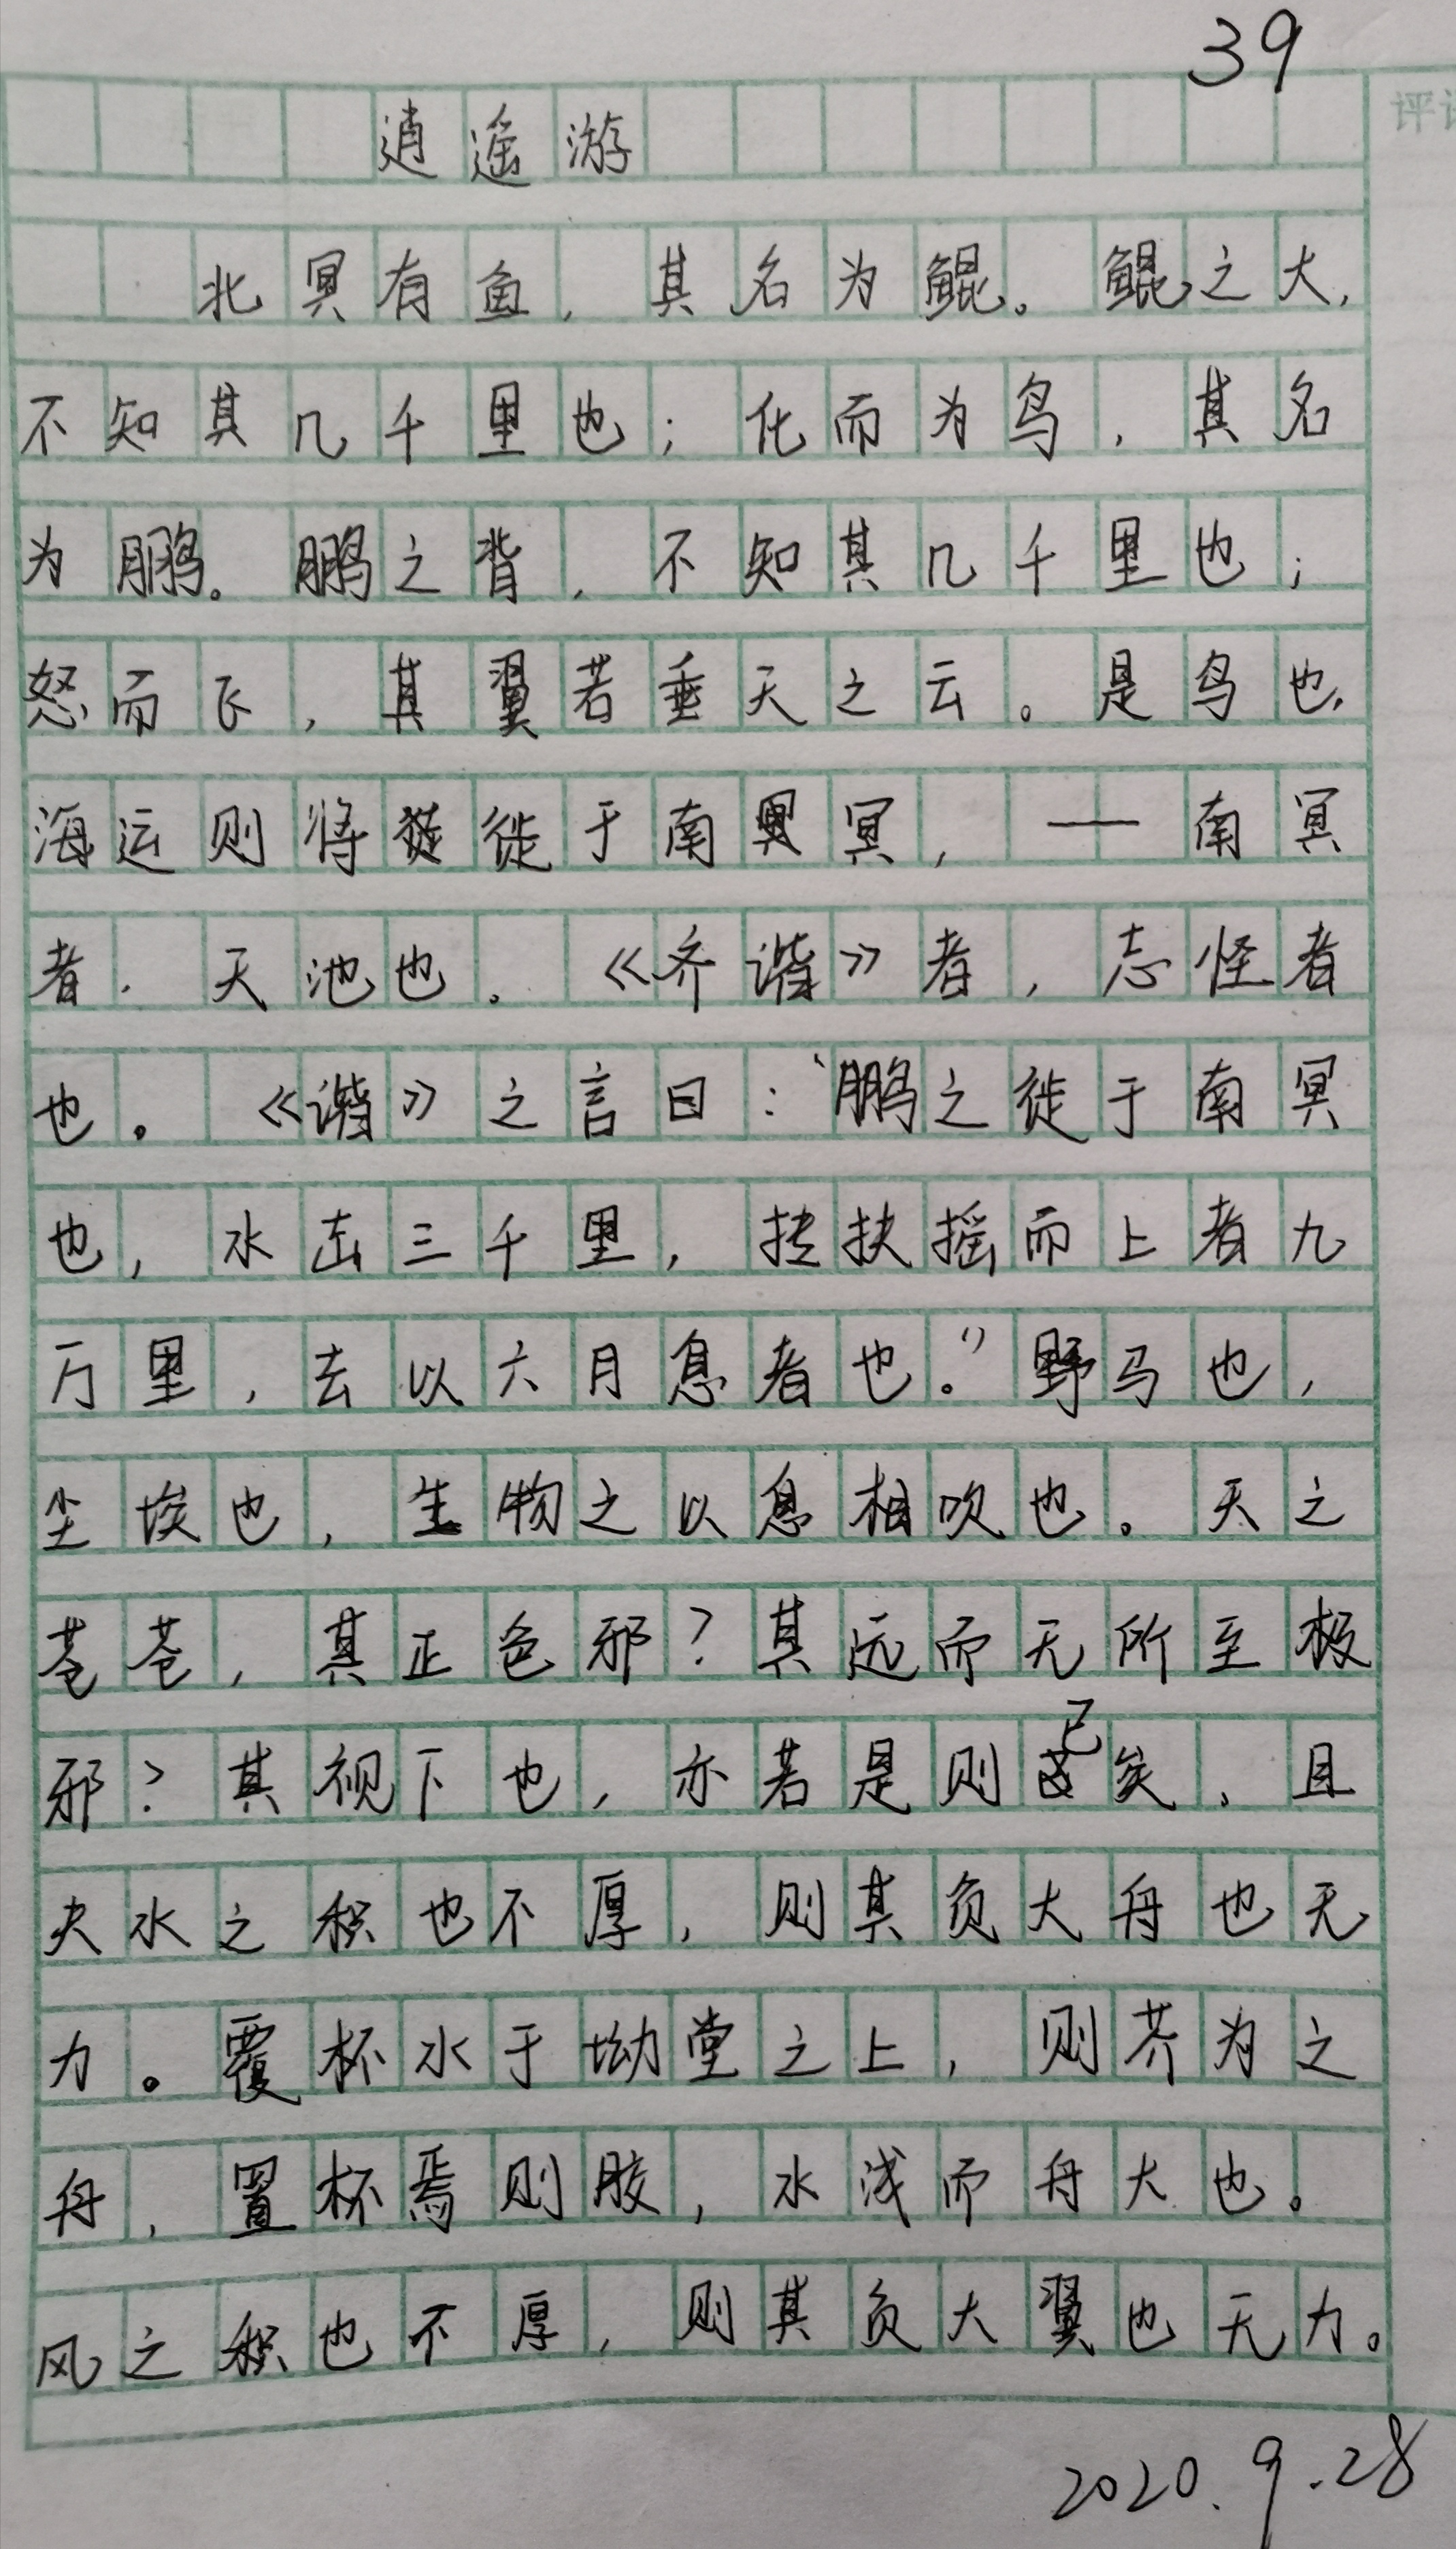 39
评
逍遥游
北冥有鱼，其名为鲲。鲲之大，
不知其几千里也；化而为鸟，其名
为鹏。鹏之背，不知其几千里也；
怒而飞，其翼若垂天之云。是鸟也，
海运则将徙于南冥，——南冥
者，天池也。《齐谐》者，志怪者
也。《谐》之言曰：“鹏之徙于南冥
也，水击三千里，抟扶摇而上者九
万里，去以六月息者也。”野马也，
尘埃也，生物之以息相吹也。天之
苍苍，其正色邪？其远而无所至极
邪？其视下也，亦若是则已矣，且
夫水之积也不厚，则其负大舟也无
力。覆杯水于坳堂之上，则芥为之
舟，置杯焉则胶，水浅而舟大也。
风之积也不厚，则其负大翼也无力。
2020.9.28